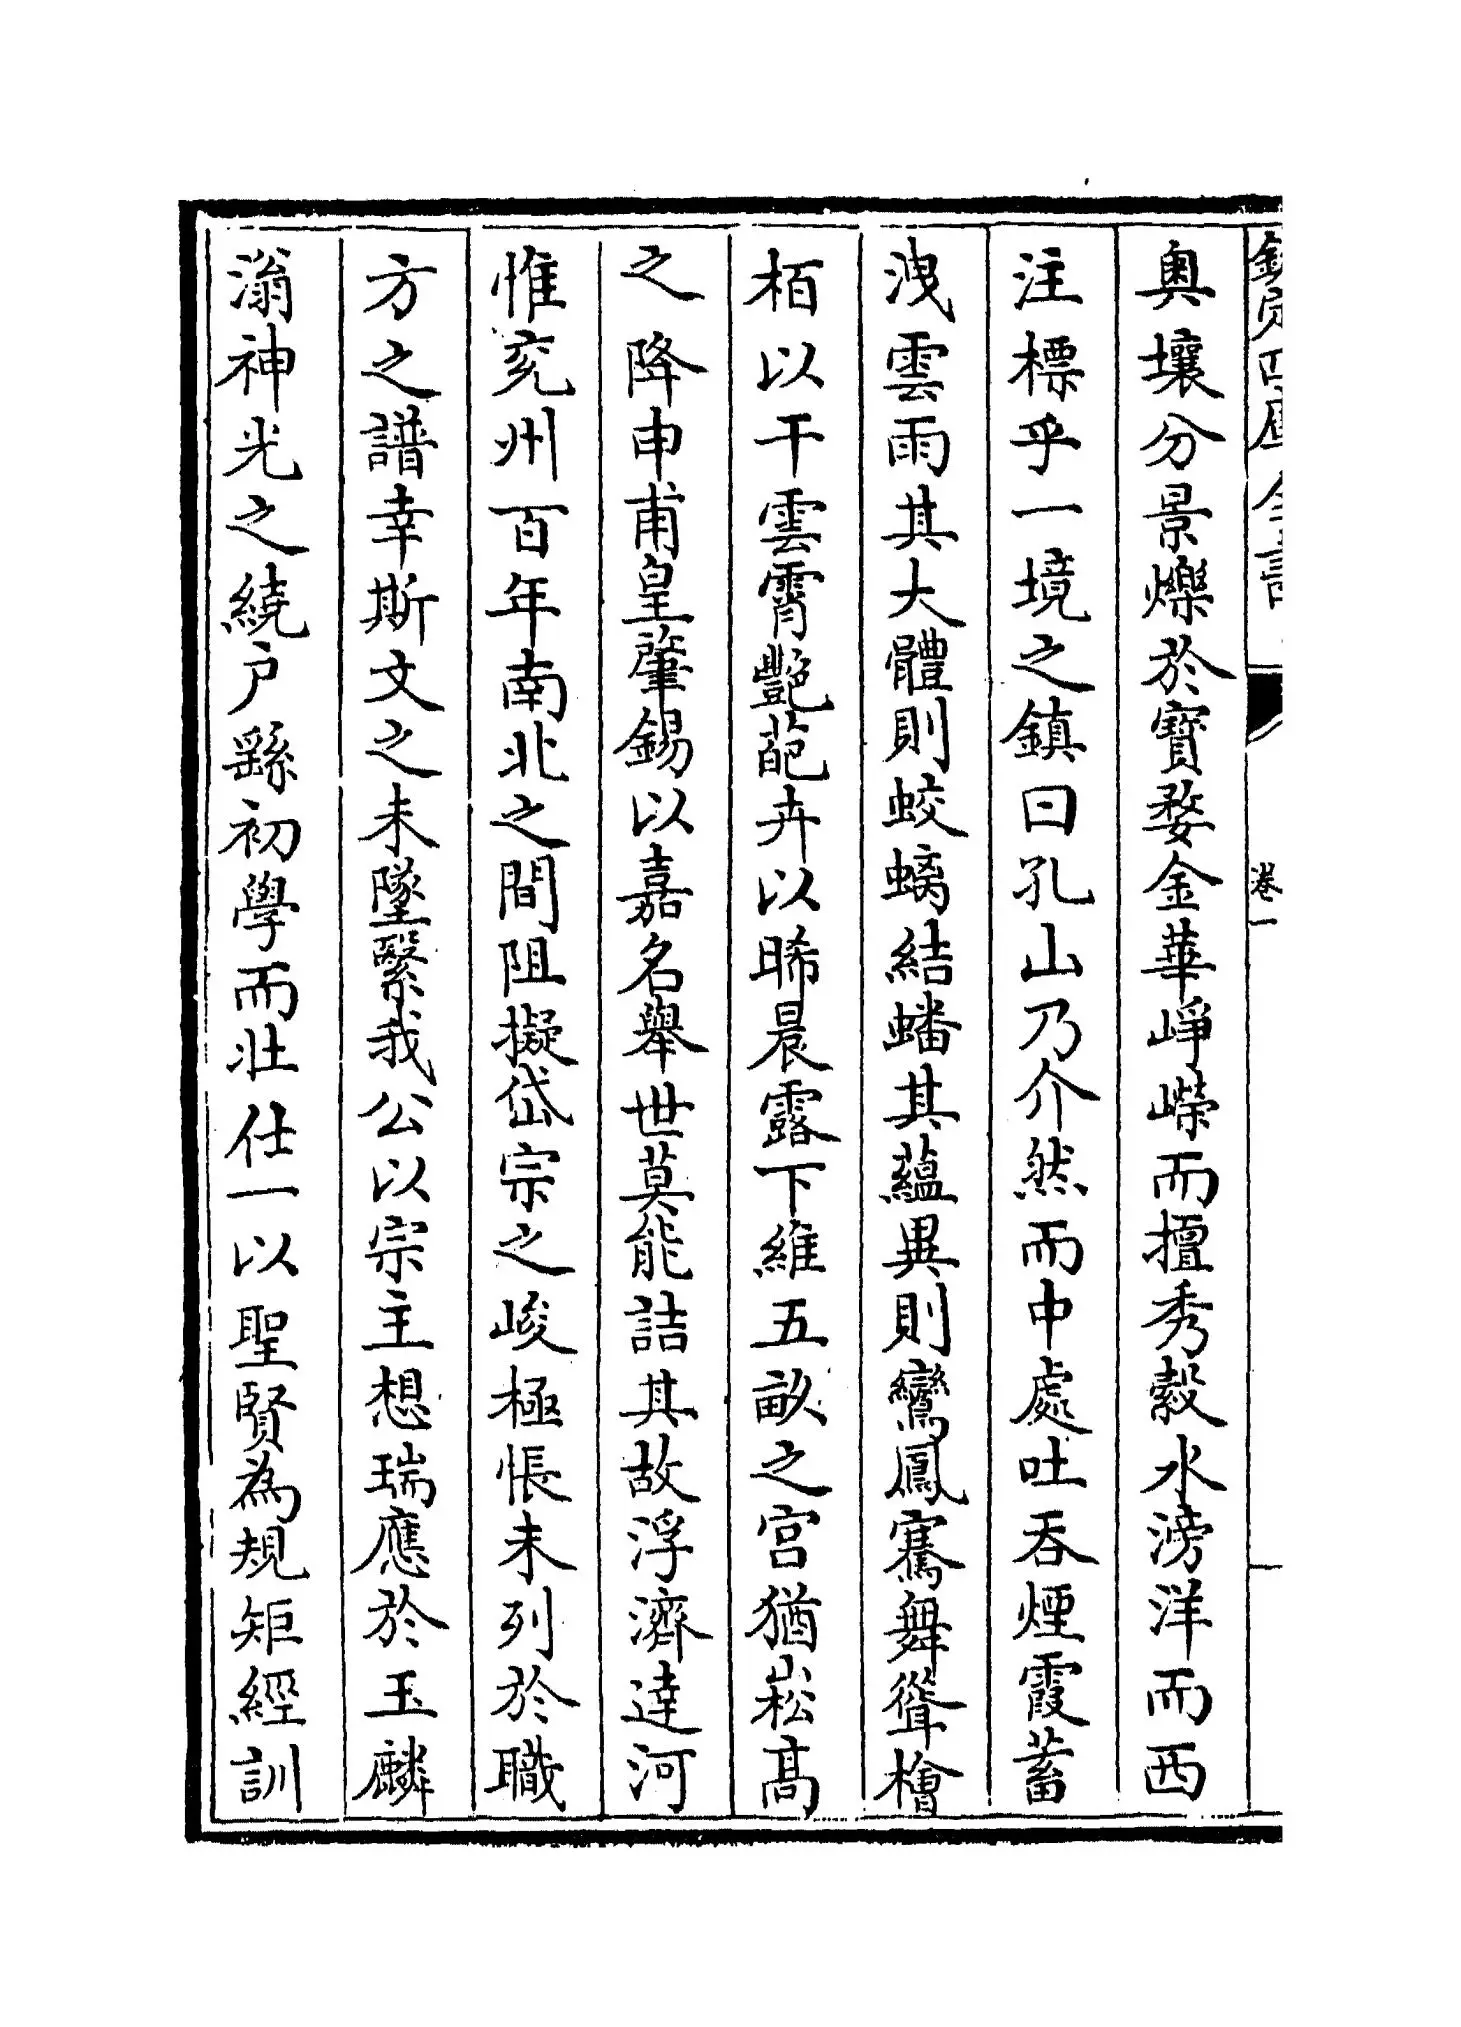 欽定四庫全書
卷一
奥壤分景爍於寳婺金華崢嶸而擅秀縠水滂洋而西
注標乎一境之鎮曰孔山乃介然而中處吐吞煙霞蓄
洩雲雨其大體則蛟螭結蟠其藴異則鸞鳳騫舞聳檜
栢以干雲霄艶葩卉以晞晨露下維五畝之宫猶崧髙
之降申甫皇肈錫以嘉名舉世莫能詰其故浮濟達河
惟兖州百年南北之間阻擬岱宗之峻極悵未列於職
方之譜幸斯文之未墜繄我公以宗主想瑞應於玉麟
滃神光之繞户繇初學而壯仕一以聖賢為規矩經訓